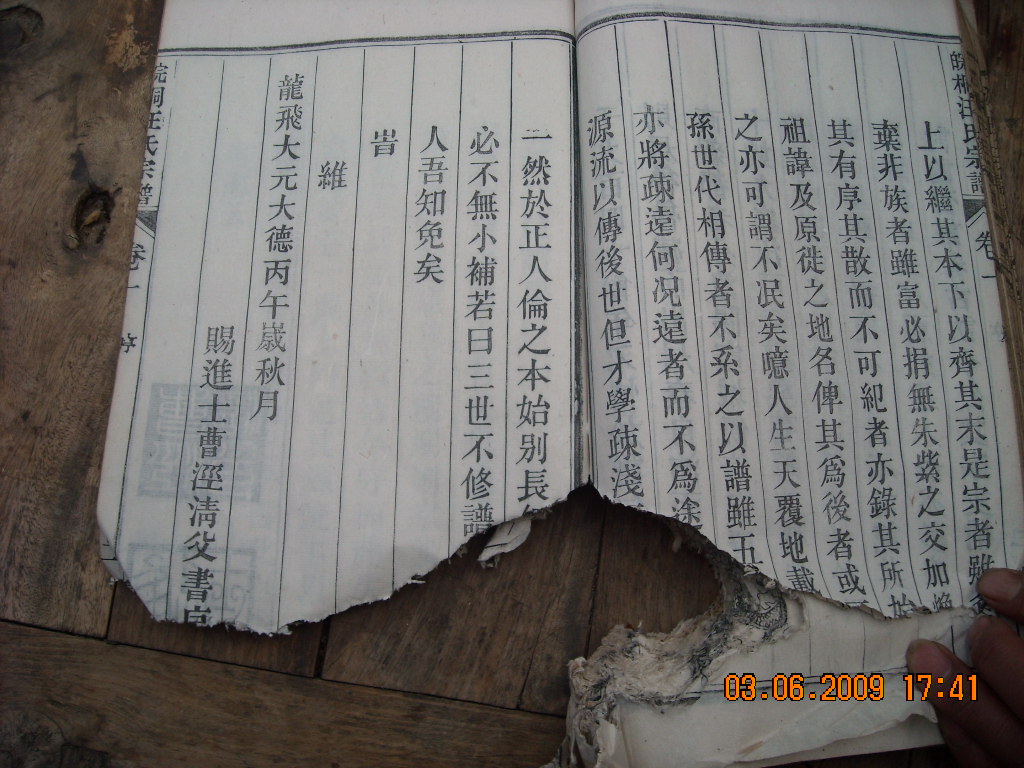 皖桐汪氏宗譜 卷一
上以繼其本下以齊其末是宗者雖
棄非族者雖富必捐無朱紫之交加
其有序其散而不可紀者亦錄其所始
祖諱及原徙之地名俾其爲後者或
之亦可謂不泯矣噫人生天覆地載
孫世代相傳者不系之以譜雖五
亦將疎遠何况遠者而不爲途
源流以傳後世但才學疎淺
一然於正人倫之本始别長
必不無小補若曰三世不修譜
人吾知免矣
旹
維
龍飛大元大德丙午嵗秋月
賜進士曹涇清父書
皖桐汪氏宗譜 卷一 序
03.06.2009 17:41